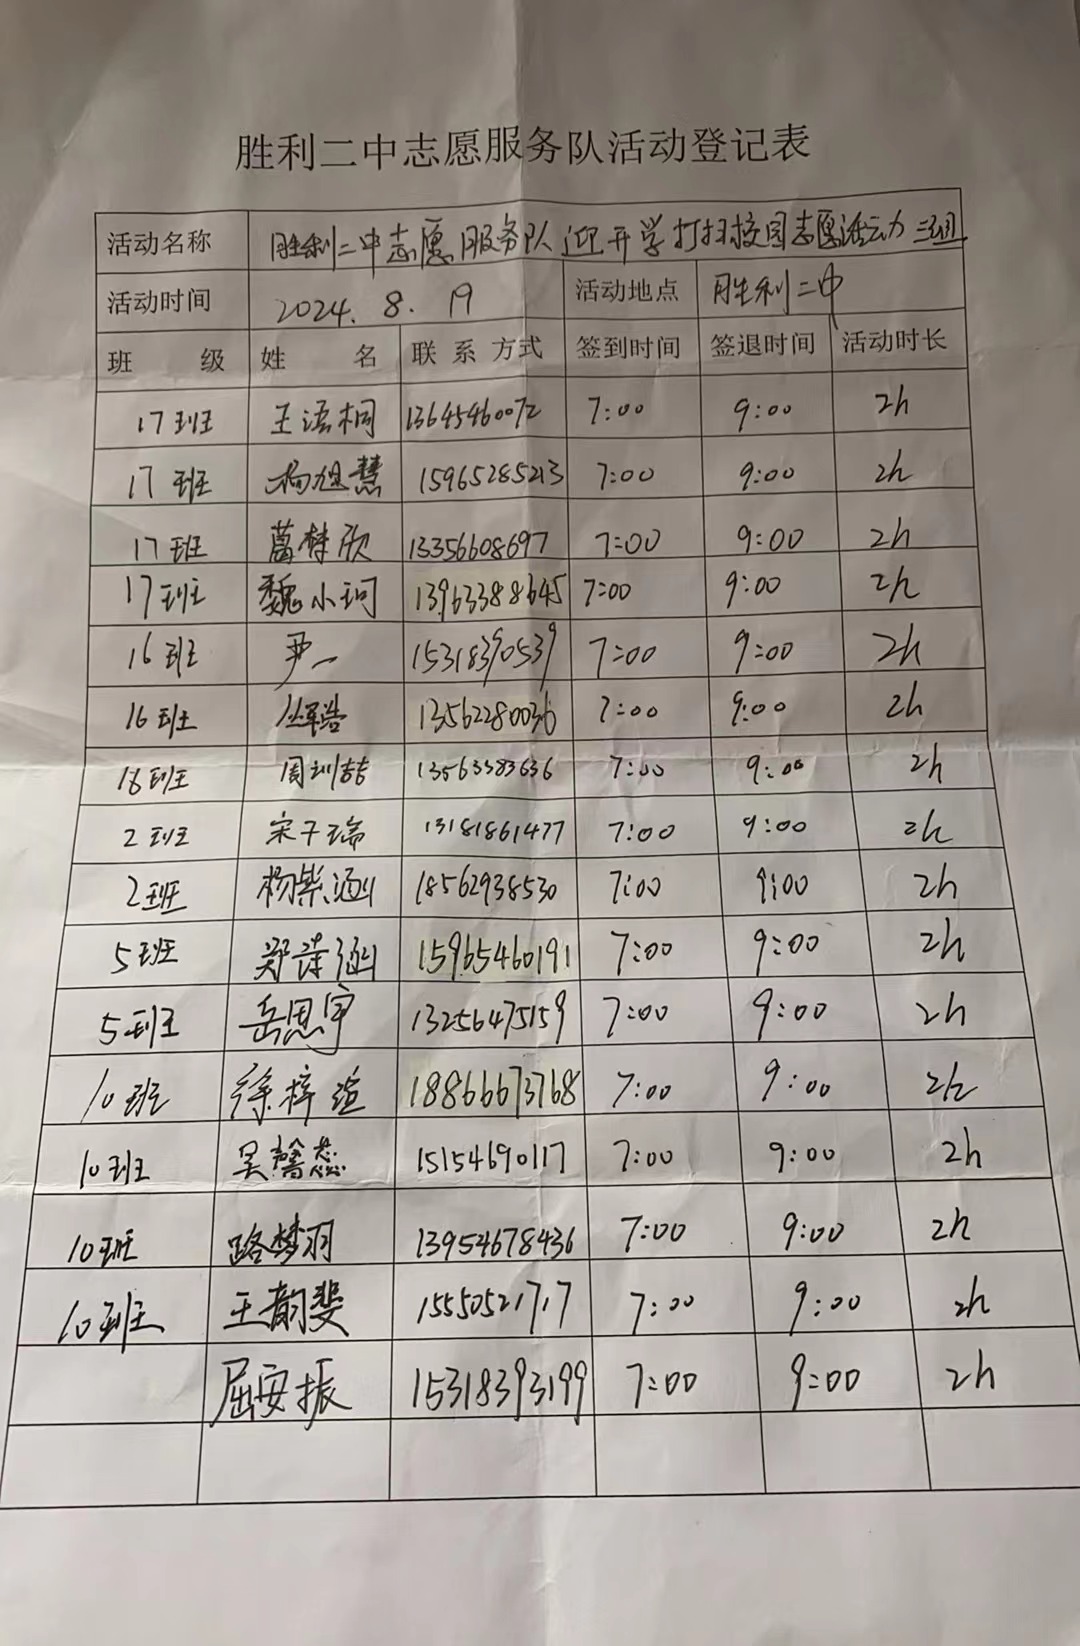 胜利二中志愿服务队活动登记表
活动名称 胜利二中志愿服务队迎开学打扫校园志愿活动 三组
活动时间 2024.8.19 活动地点 胜利二中
班 级 姓 名 联系方式 签到时间 签退时间 活动时长
17班 王浯桐 13645460072 7:00 9:00 2h
17班 杨旭慧 15965285213 7:00 9:00 2h
17班 葛梦欣 13356608697 7:00 9:00 2h
17班 魏小珂 13963388645 7:00 9:00 2h
16班 尹一 15318390539 7:00 9:00 2h
16班 13562280036 7:00 9:00 2h
16班 周训喆 13563383636 7:00 9:00 2h
2班 宋子瑞 13181861477 7:00 9:00 2h
2班 杨紫涵 18562938530 7:00 9:00 2h
5班 郑诗涵 15965460191 7:00 9:00 2h
5班 岳思宇 13256475159 7:00 9:00 2h
10班 徐梓萱 18866673768 7:00 9:00 2h
10班 吴馨蕊 15154690117 7:00 9:00 2h
10班 路梦羽 13954678436 7:00 9:00 2h
10班 王韵斐 15550521717 7:00 9:00 2h
屈安振 15318393199 7:00 9:00 2h